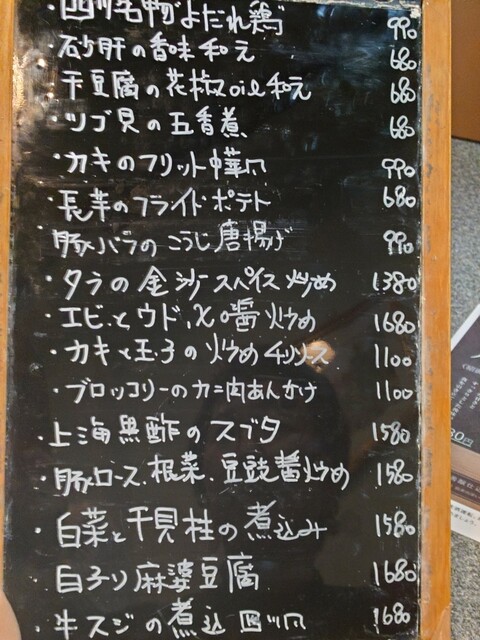 ・四川名物よだれ鶏 990
・砂肝の香味和え 680
・干豆腐の花椒oil和え 680
・ツブ貝の五香煮 680
・カキのフリット中華風 990
・長芋のフライドポテト 680
・豚バラのこうじ唐揚げ 990
・タラの金沙スパイス炒め 1380
・エビとウド、XO醤炒め 1680
・カキと玉子の炒めチリソース 1100
・ブロッコリーのカニ肉あんかけ 1100
・上海黒酢のスブタ 1580
・豚ロース、根菜、豆豉醤炒め 1580
・白菜と干貝柱の煮込み 1580
・白子入り麻婆豆腐 1680
・牛スジの煮込 四川風 1680